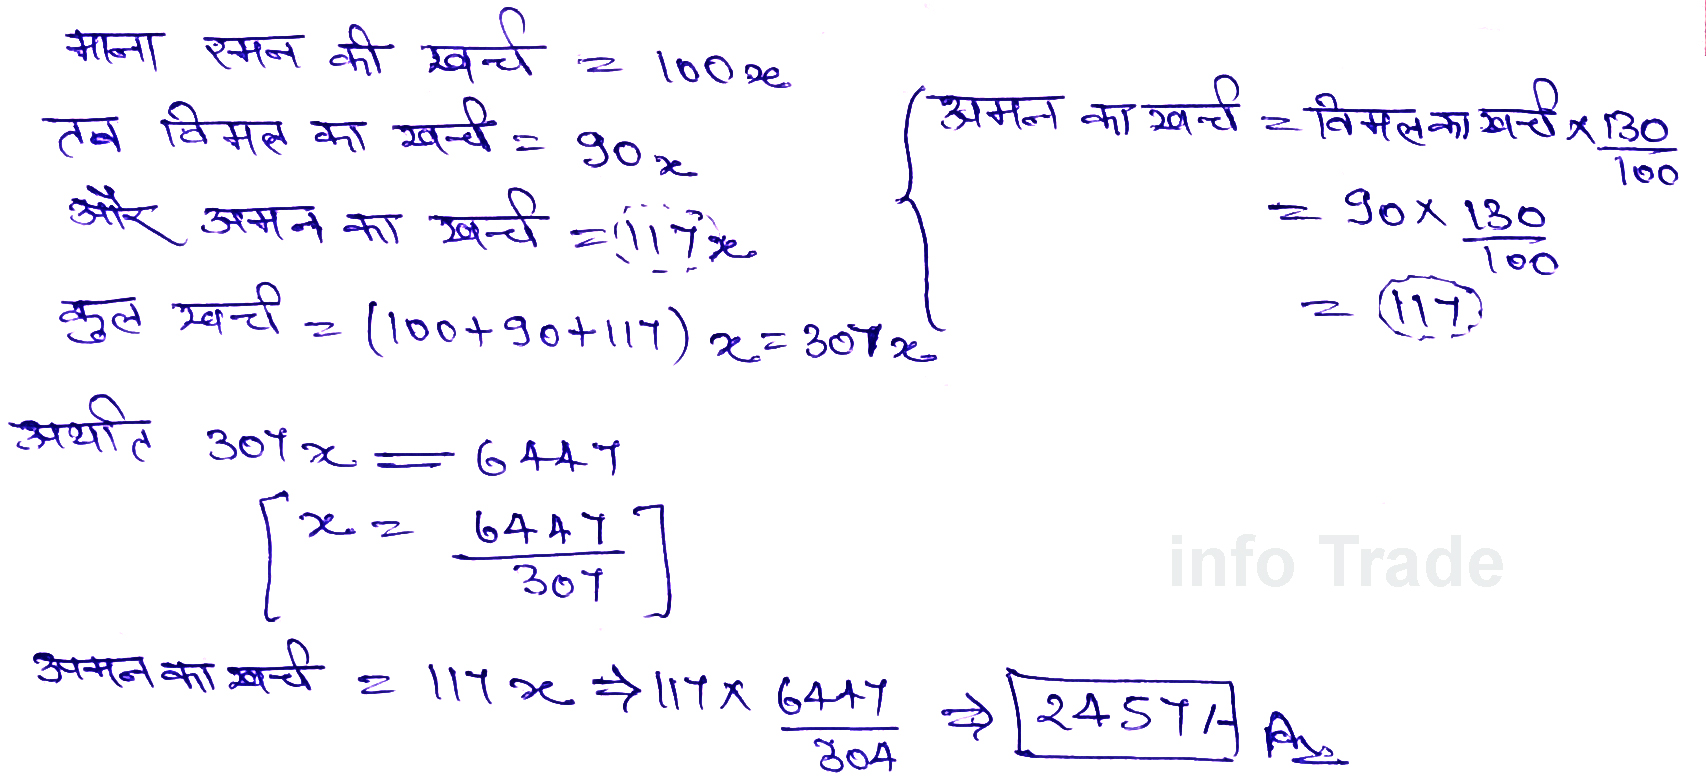 माना रमन की खर्च = 100x
तब विमल का खर्च = 90x
और अमन का खर्च = 117x
कुल खर्च = (100+90+117) x = 307x
अमन का खर्च = विमल का खर्च × 130/100
= 90 × 130/100
= 117
अर्थात 307x = 6447
[x = 6447/307]
अमन का खर्च = 117x ⇒ 117 × 6447/304 ⇒ 2457/- Ans
info Trade